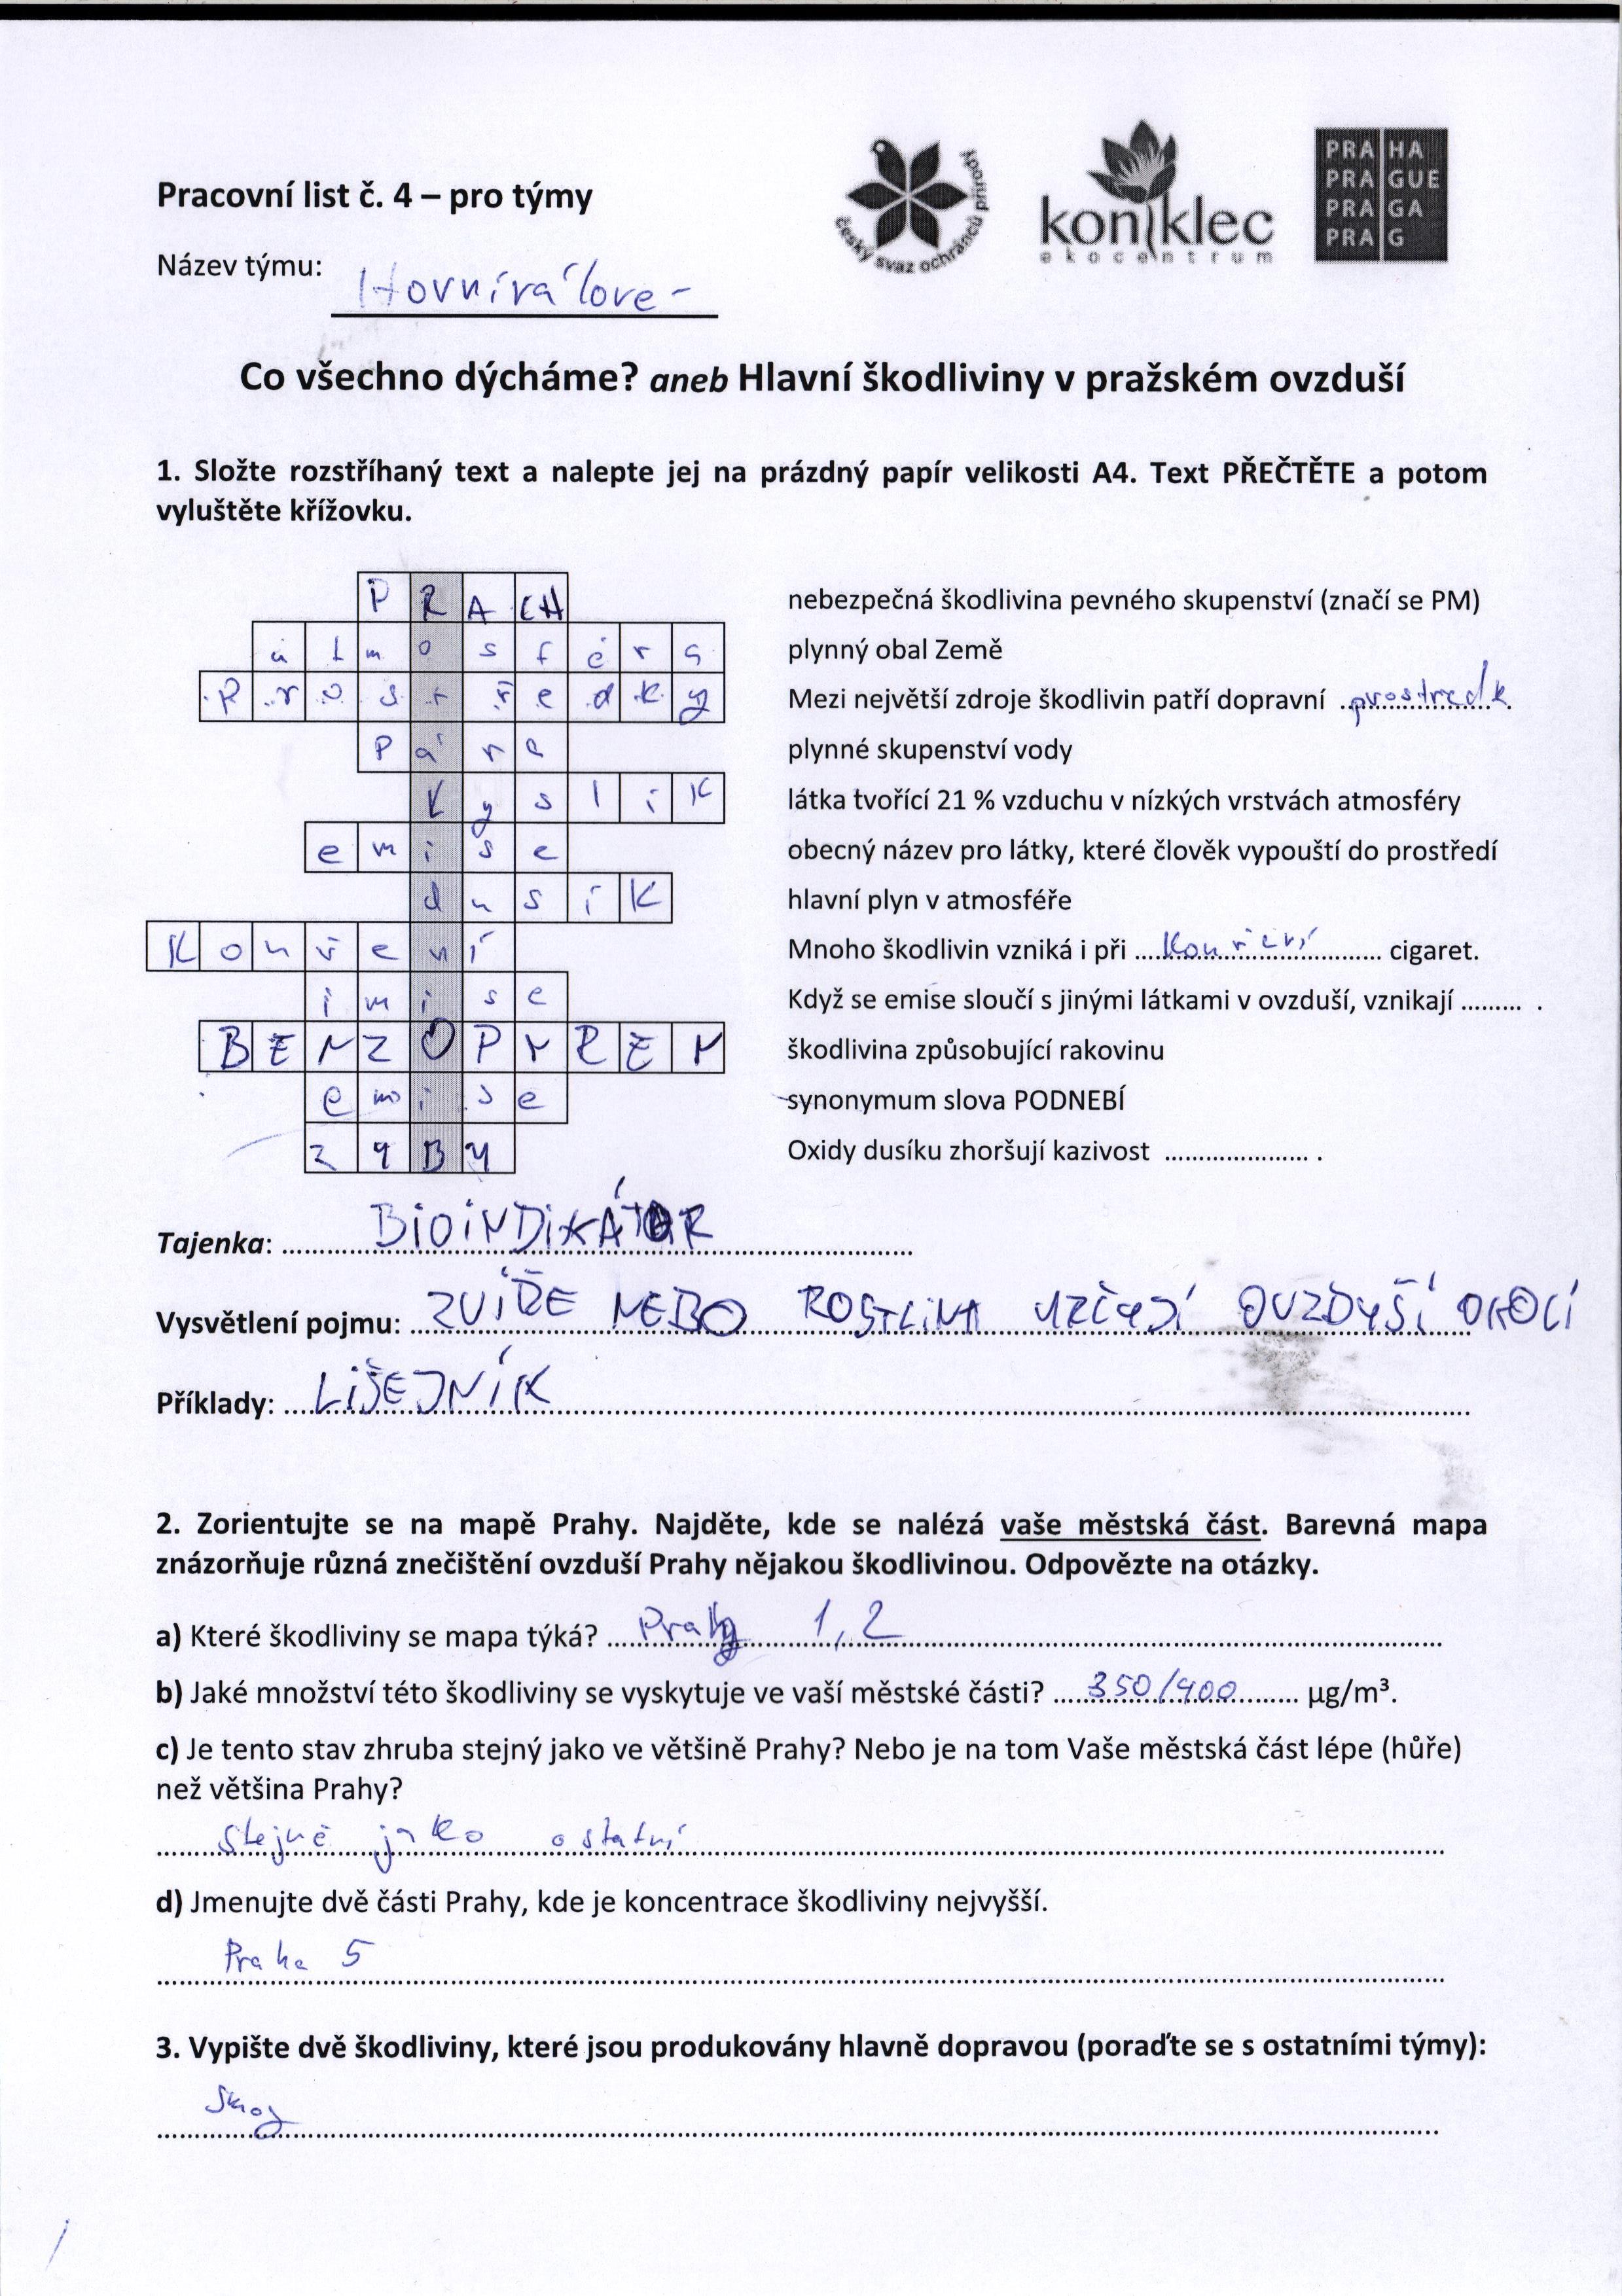 český svaz ochránců přírody
koniklec
ekocentrum
PRA HA
PRA GUE
PRA GA
PRA G
Pracovní list č. 4 – pro týmy
Název týmu:
Co všechno dýcháme? aneb Hlavní škodliviny v pražském ovzduší
1. Složte rozstříhaný text a nalepte jej na prázdný papír velikosti A4. Text PŘEČTĚTE a potom
vyluštěte křížovku.
PRACH nebezpečná škodlivina pevného skupenství (značí se PM)
atmosféra plynný obal Země
Prostředky Mezi největší zdroje škodlivin patří dopravní prostredk.
Pára plynné skupenství vody
kyslík látka tvořící 21 % vzduchu v nízkých vrstvách atmosféry
emise obecný název pro látky, které člověk vypouští do prostředí
dusík hlavní plyn v atmosféře
Kouření Mnoho škodlivin vzniká i při Kouření cigaret.
imise Když se emise sloučí s jinými látkami v ovzduší, vznikají ......... .
BENZOPYREN škodlivina způsobující rakovinu
emise synonymum slova PODNEBÍ
ZUBU Oxidy dusíku zhoršují kazivost ..................... .
Tajenka: BIOINDIKÁTOR
Vysvětlení pojmu: ZVÍŘE NEBO ROSTLINA URČUJÍ OVZDUŠÍ OKOLÍ
Příklady: LIŠEJNÍK
2. Zorientujte se na mapě Prahy. Najděte, kde se nalézá vaše městská část. Barevná mapa
znázorňuje různá znečištění ovzduší Prahy nějakou škodlivinou. Odpovězte na otázky.
a) Které škodliviny se mapa týká? Prahy 1,2
b) Jaké množství této škodliviny se vyskytuje ve vaší městské části? 350/400 µg/m³.
c) Je tento stav zhruba stejný jako ve většině Prahy? Nebo je na tom Vaše městská část lépe (hůře)
než většina Prahy?
Stejně jako ostatní
d) Jmenujte dvě části Prahy, kde je koncentrace škodliviny nejvyšší.
Praha 5
3. Vypište dvě škodliviny, které jsou produkovány hlavně dopravou (poraďte se s ostatními týmy):
Smog